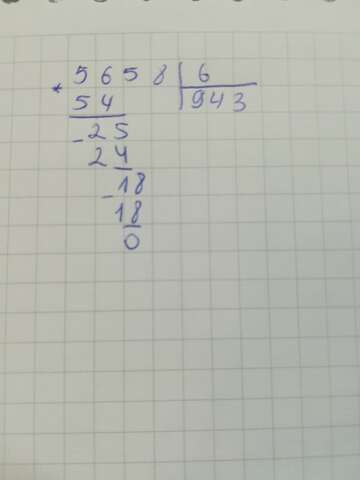 * 5658 | 6
54 | 943
- 25
24
- 18
18
0